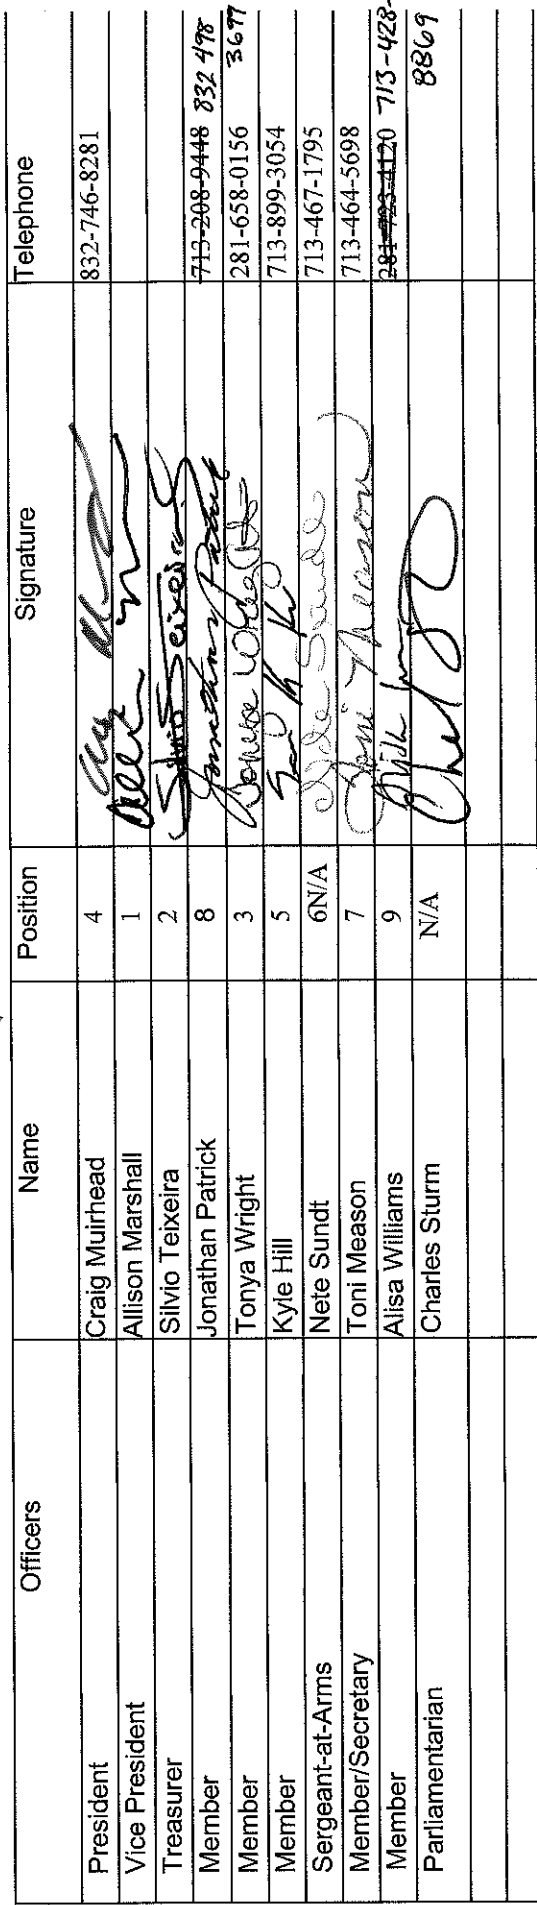 Officers Name Position Signature Telephone
President Craig Muirhead 4 832-746-8281
Vice President Allison Marshall 1
Treasurer Silvio Teixeira 2 Silvio Teixeira
Member Jonathan Patrick 8 Jonathan Patrick 713-208-9448 832 498 3697
Member Tonya Wright 3 281-658-0156
Member Kyle Hill 5 713-899-3054
Sergeant-at-Arms Nete Sundt 6N/A 713-467-1795
Member/Secretary Toni Meason 7 Toni Meason 713-464-5698
Member Alisa Williams 9 281-723-4120 713-428-8869
Parliamentarian Charles Sturm N/A